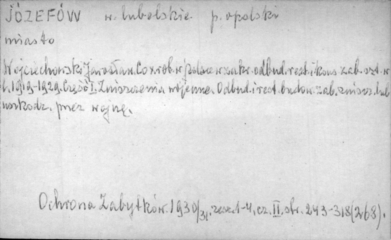 JÓZEFÓW w. lubelskie p. opolsk
miasto
Wojciechowski Jarosław. Co zrob. w Polsce w zakr. odbud. rest. i kons. zab. szt. w
l. 1919-1929. Część I. Zniszczenia wojenne. Odbud. i rest. budow. zab. zniszcz. lub
uszkodz. przez wojnę.
Ochrona Zabytków. 1930/31. zesz. 1-4, cz. II. str. 243-318 (268).